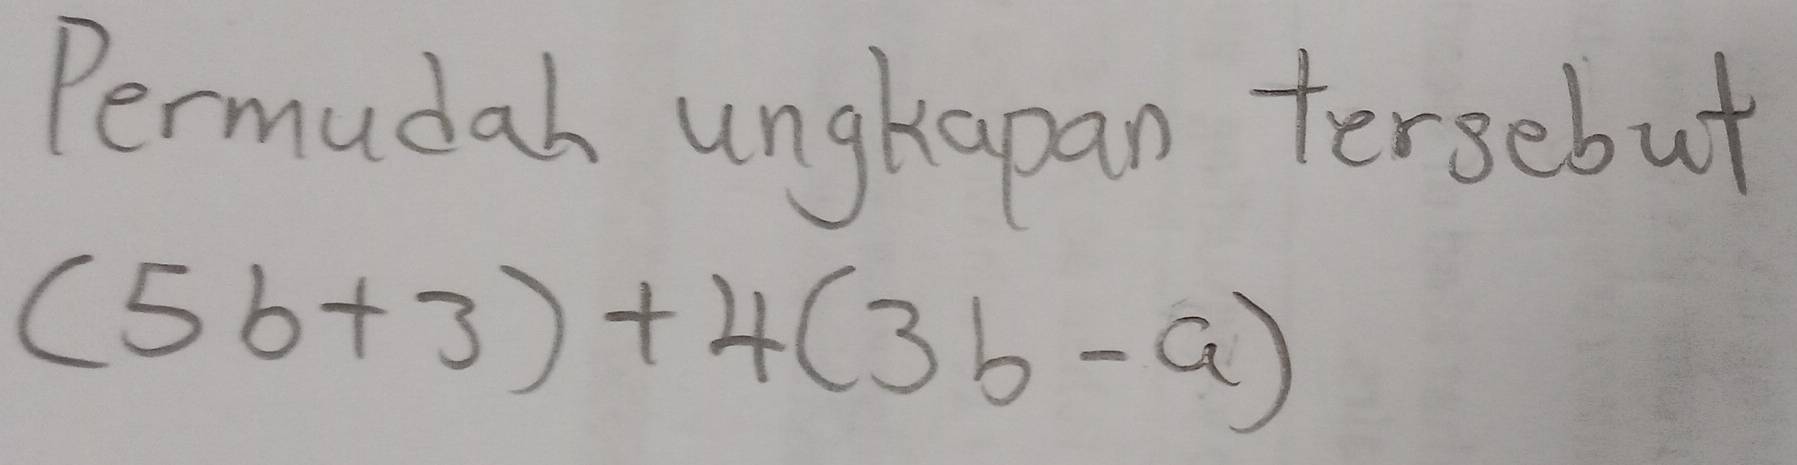 Permudah ungkapan tersebut
(5b+3)+4(3b-a)